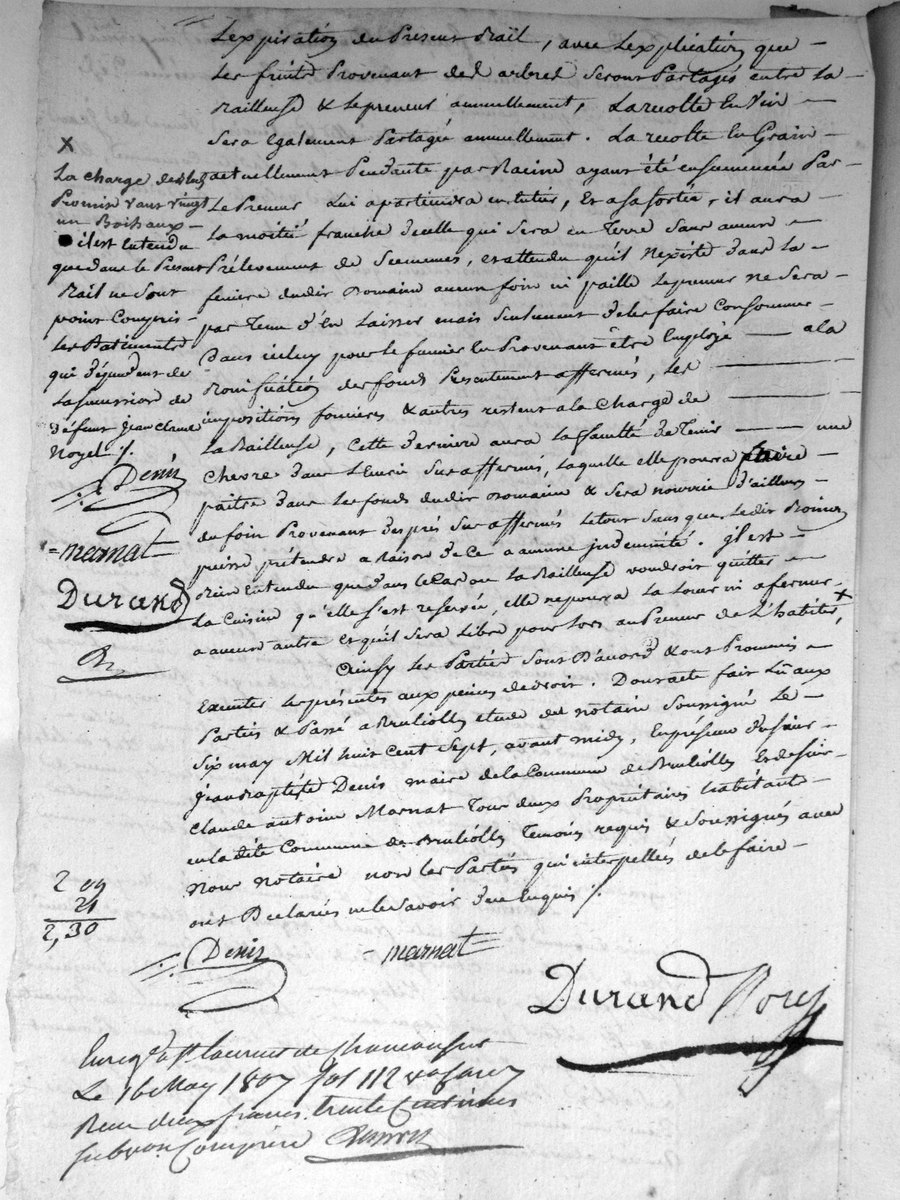 L'expiration du Present Bail, avec l'explication que
les fruits Provenant des arbres seront Partagés entre la
Bailleuse & le preneur annuellement, La recolte en vin
sera également Partagée annuellement. La recolte en Grain
actuellement Pendante par Racine ayant été ensemencée Par
Le Preneur Lui apartiendra en entier, Et a sa sortie, il aura
la moitié franche d'icelle qui sera en Terre sans aucun
Prélevement de Semences, et attendu qu'il n'existe dans la
feniere dudit Domaine aucun foin ni paille le preneur ne sera
pas Tenu d'en Laisser mais seulement de les faire Consommer
Dans icelui pour le fumier en Provenant être Employé a la
Bonification des fonds Presentement affermés, Les
impositions foncieres & autres restent a la Charge de
la Bailleuse, Cette derniere aura la faculté de Tenir une
Chevre dans l'Ecurie sus affermée, laquelle elle pourra faire
paitre dans les fonds dudit Domaine & sera nourrie d'ailleurs
du foin Provenant des prés sus affermés le tout sans que ledit
puisse prétendre a Raison de Ce a aucune indemnité. Il est
Bien Entendu que dans le Cas ou la Bailleuse voudroit quitter
la Cuisine qu'elle s'est reservée, elle ne poura la louer ni afermer
a aucun autre Et qu'il sera Libre pour lors au Preneur de L'habiter X
Ainsy les Parties sont D'acord & ont Promis
Executer les présentes aux peines de droit. Dont acte fait Lû aux
Parties & Passé a Brulliolles etude du notaire Soussigné Le
Six may Mil huit Cent Sept, avant midy, En présence de Sieur
Jean Baptiste Denis maire de la Commune de Brulliolles Et de Sieur
Claude antoine Marnat Tous deux Propriétaires habitants
en la dite Commune de Brulliolles Temoins requis & Soussignés avec
Nous notaire non les Parties qui interpellées de le faire
ont Déclarées ne le Savoir de ce Enquis /.
X
La charge de
Promis vaut vingt
un Boichaux
il est Entendu
que dans le Present
Bail ne sont
point Compris
les Batiments
qui dépendent de
La succession de
défunt Jean Claude
Noyel /.
Denis
=marnat=
Durand
2 09
21
2,30
Denis
=marnat=
Durand
Enregé a St Laurent de Chamousset
Le 16 May 1807 fol 112
Recu deux francs trente Centimes
subvon Comprise